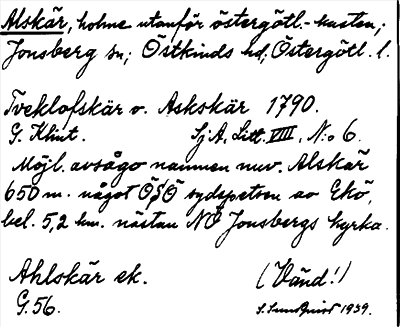 Alskär, holme utanför östergötl.-kusten;
Jonsberg sn; Östkinds hd; Östergötl. l.
Tveklofskär o. Askskär 1790.
G. Klint. Sj A, Litt. VIII, N:o 6.
Möjl. avsågo namnen nuv. Alskär
650 m. något ÖSÖ sydspetsen av Ekö,
bel. 5,2 km. nästan NÖ Jonsbergs kyrka.
Ahlskär ek. (Vänd!)
G. 56. S. Sundquist 1939.